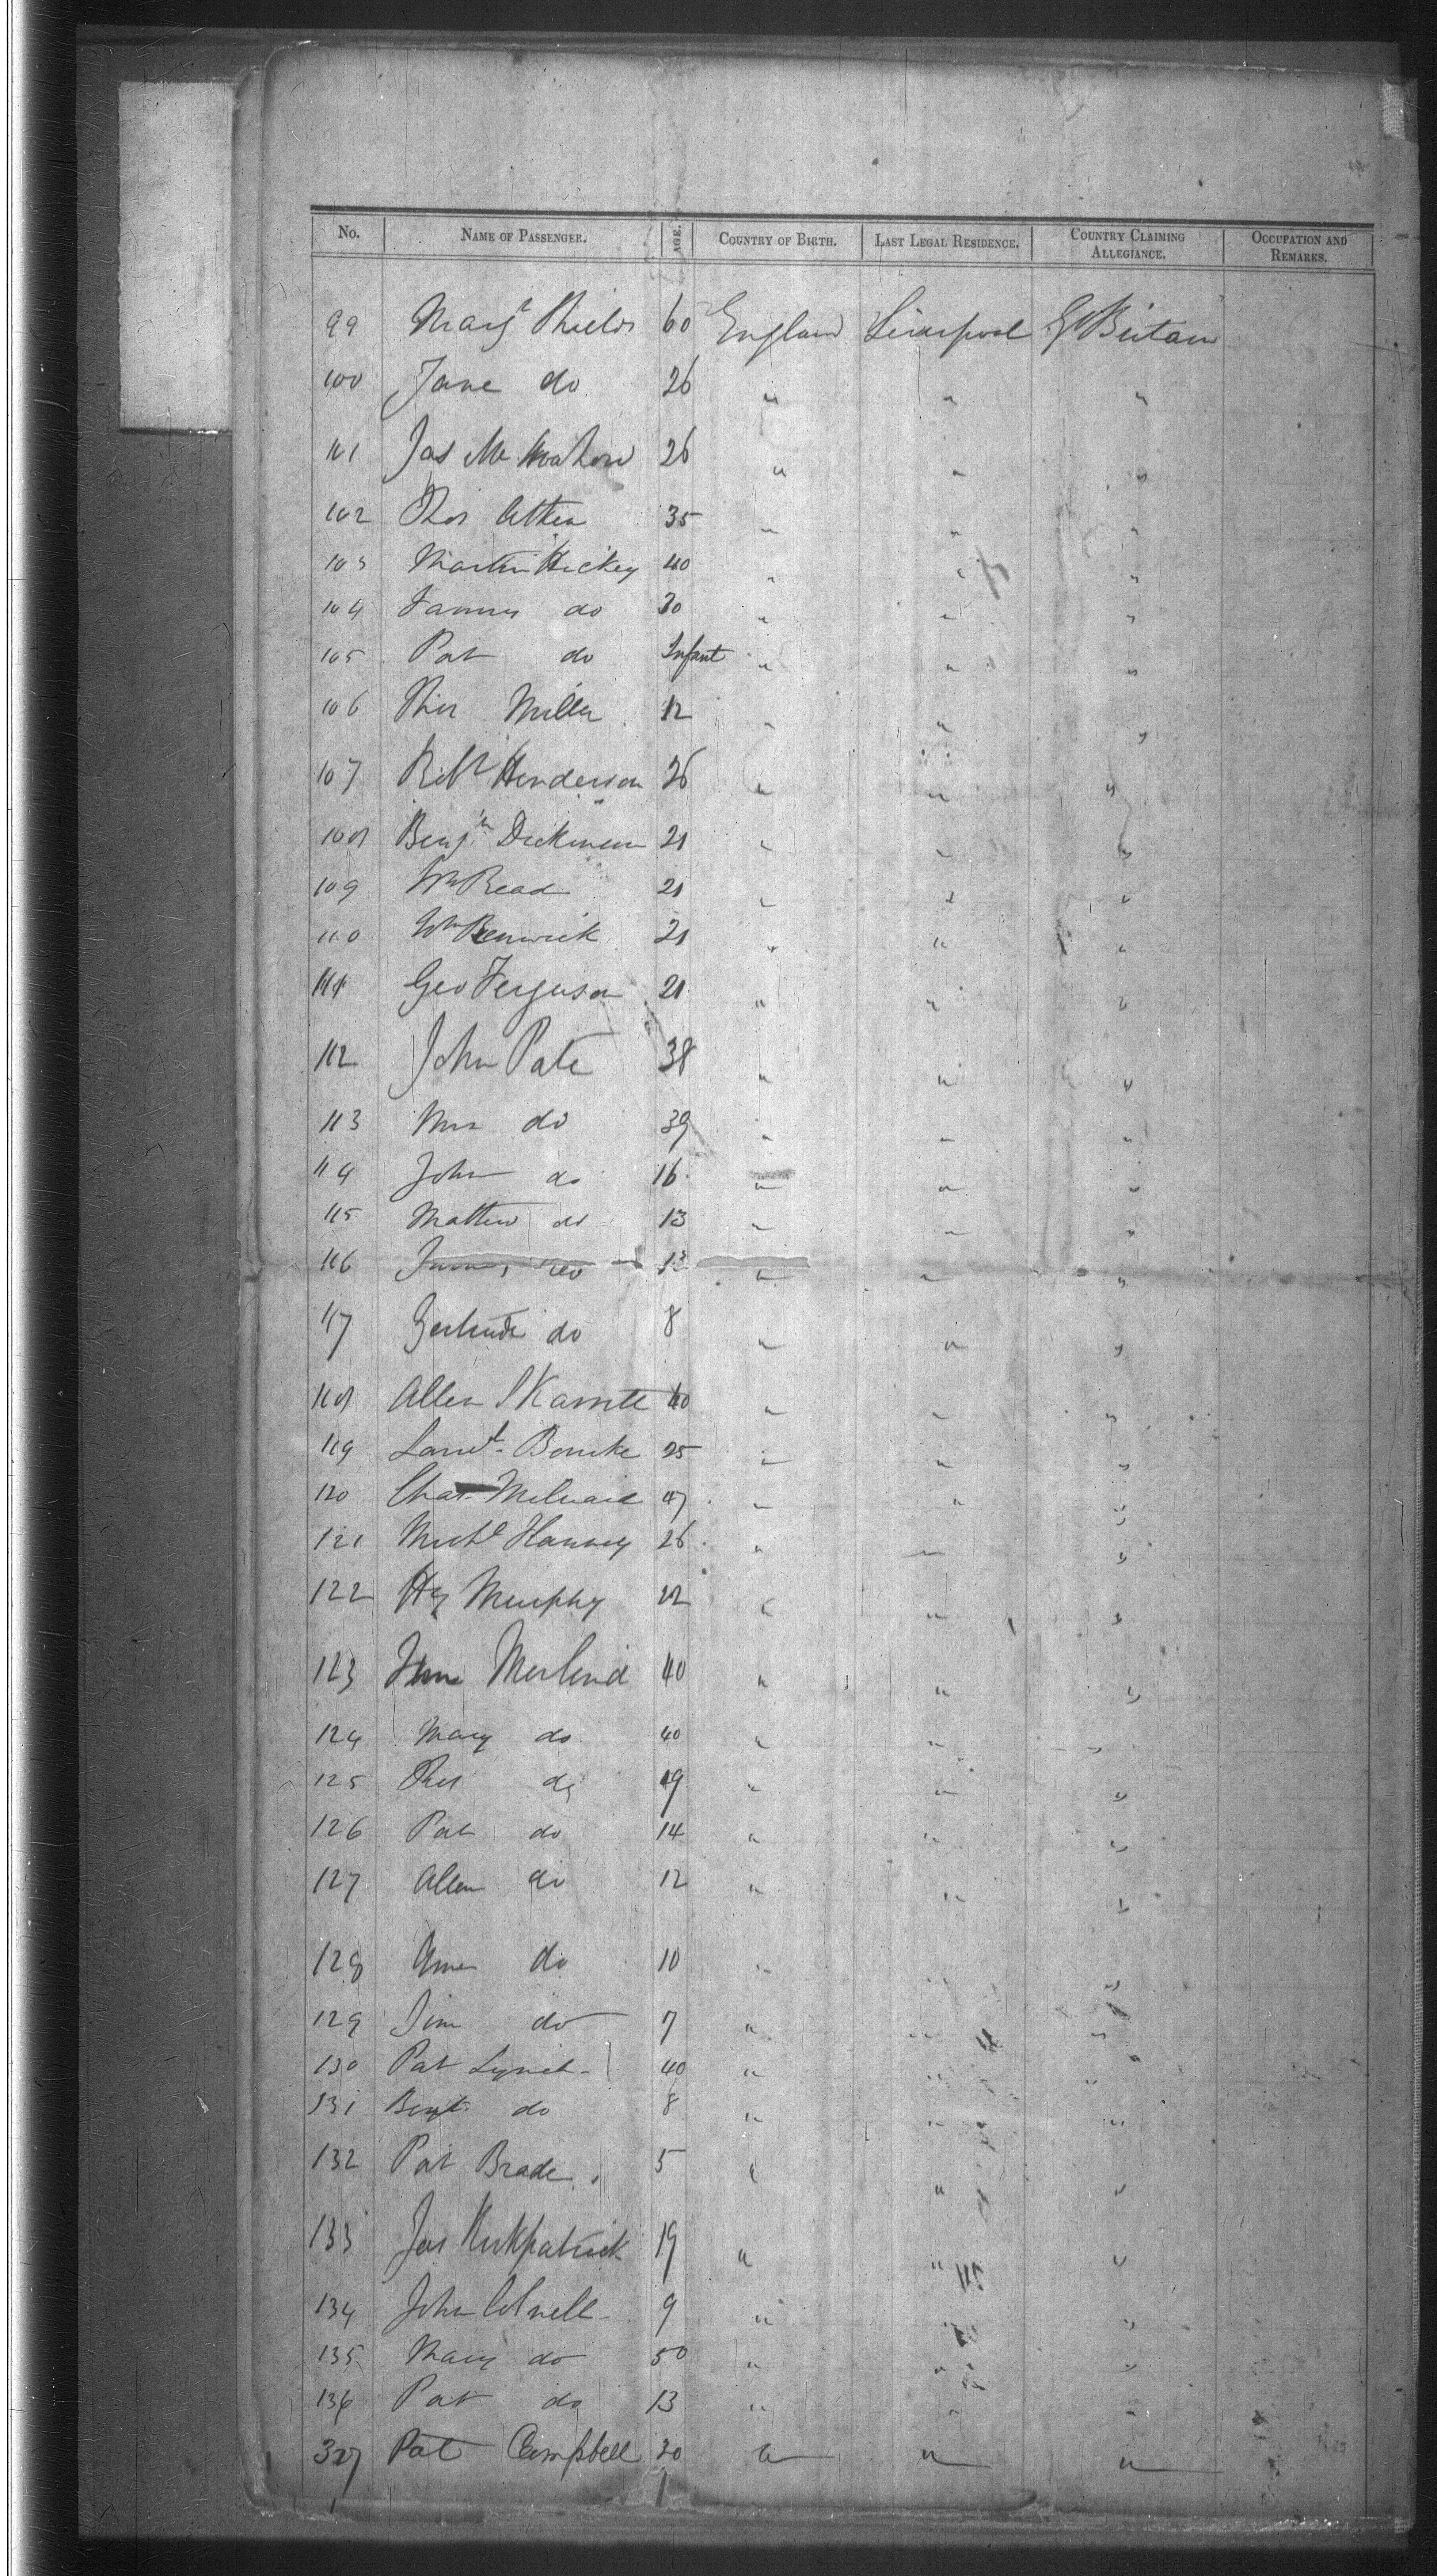 No. NAME OF PASSENGER. AGE. COUNTRY OF BIRTH. LAST LEGAL RESIDENCE. COUNTRY CLAIMING ALLEGIANCE. OCCUPATION AND REMARKS.
99 Margt Shields 60 England Liverpool Gt Britain
100 Jane do 26 " " "
101 Jas McMahon 26 " " "
102 Thos 35 " " "
103 Martin Hickey 40 " " "
104 Fanny do 30 " " "
105 Pat do Infant " " "
106 Thos Miller 12 " " "
107 Robt Henderson 26 " " "
108 Benjn Dickinson 21 " " "
109 Wm Read 21 " " "
110 Wm Renwick 21 " " "
111 Geo Ferguson 21 " " "
112 John Pate 38 " " "
113 Mrs do 39 " " "
114 John do 16 " " "
115 Mattew do 13 " " "
116 do " " "
117 Gertrude do 8 " " "
118 Allen " " "
119 Bourke 25 " " "
120 Chas 47 " " "
121 Michl 26 " " "
122 Hy Murphy 22 " " "
123 40 " " "
124 Mary do 40 " " "
125 Thos do 19 " " "
126 Pat do 14 " " "
127 Allen do 12 " " "
128 do 10 " " "
129 Jim do 7 " " "
130 Pat Lynch 40 " " "
131 do 8 " " "
132 Pat Brade 5 " " "
133 Jas Kirkpatrick 19 " " "
134 John 9 " " "
135 Mary do 50 " " "
136 Pat do 13 " " "
Pat Campbell 30 " " "